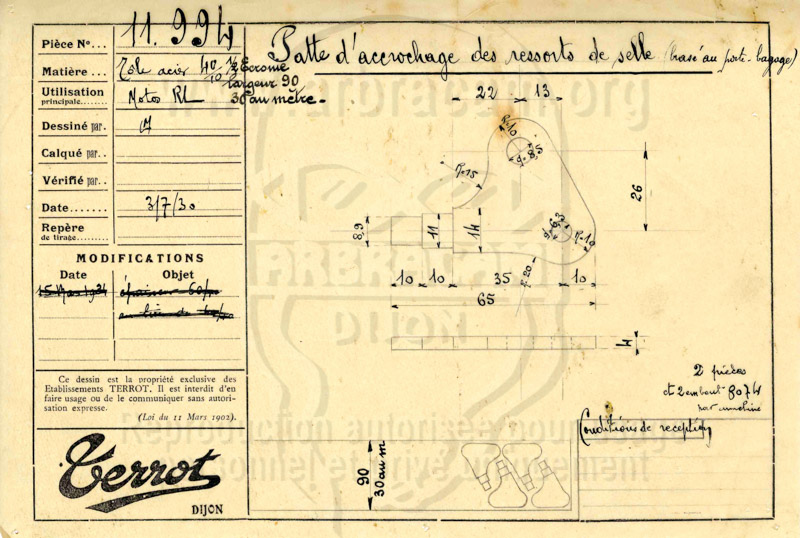 Pièce Nº... 11.994
Patte d'accrochage des ressorts de selle (brasé au porte-bagage)
Matière... Tôle acier 40/10 ½ Ecrouie
largeur 90
30 au mètre.
Utilisation
principale....... Motos RL
Dessiné par.
Calqué par...
Vérifié par...
Date....... 3/7/30
Repère
de tirage........
MODIFICATIONS
Date Objet
15 Mai 1931 épaisseur 60/10
au lieu de
Ce dessin est la propriété exclusive des
Etablissements TERROT. Il est interdit d'en
faire usage ou de le communiquer sans autori-
sation expresse.
(Loi du 11 Mars 1902).
Terrot
DIJON
22 13
R=10
d=8,5
R=15
26
8,9 11 14
d=6,3
R=10
10 10 35 10
R=20
65
4
2 pièces
et 2 embout 8074
par machine
Conditions de reception
90
30 au m
DIJON
Reproduction autorisée pour usage
personnel et privé uniquement